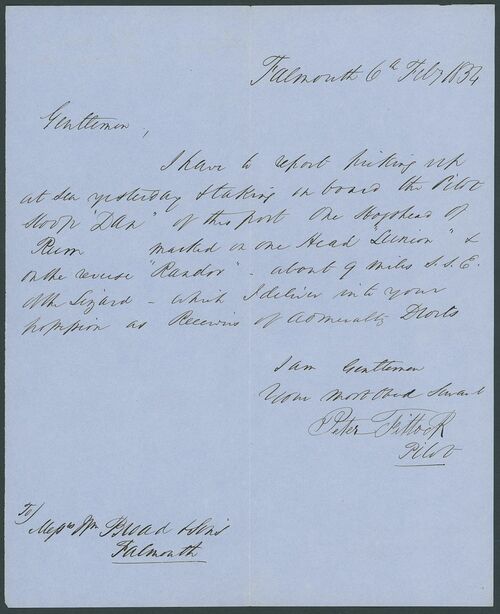 Falmouth 6th Feby 1834
Gentlemen,
I have to report picking up
at sea yesterday & taking on board the Pilot
Sloop "Dan" of this port One Hogshead of
Rum marked on one Head &
on the reverse - about 9 miles S.S.E.
of the Lizard - which I deliver into your
possession as Receivers of Admiralty Droits
I am Gentlemen
Your most Obed Servant
Peter Fittock
Pilot
To/
Messrs Wm Broad & Sons
Falmouth